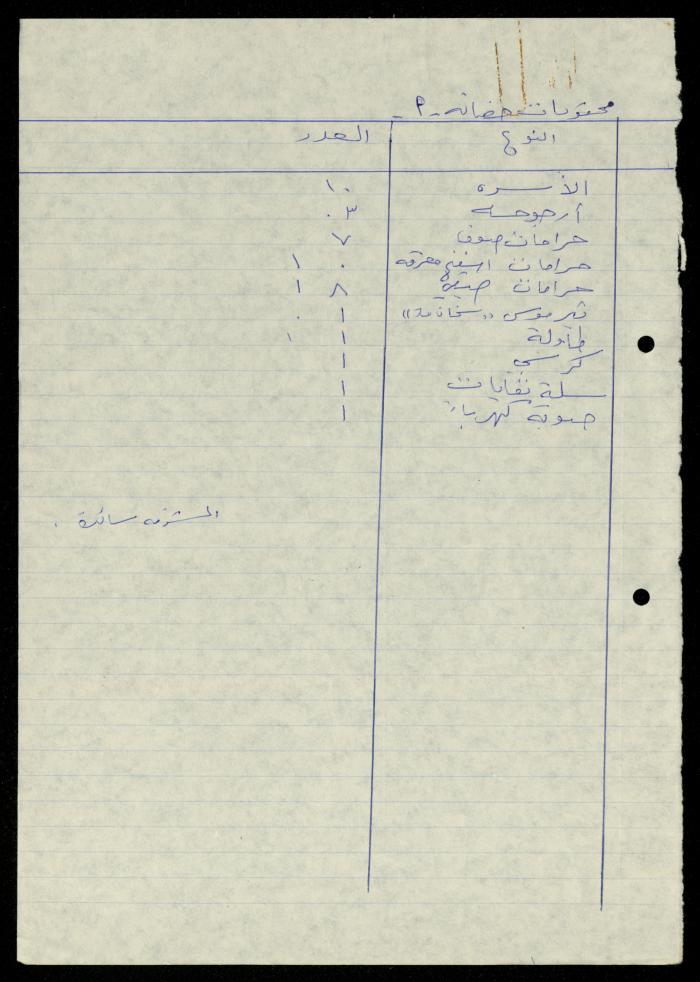 محتويات حضانه - ٩ -
النوع العدد
الأسره ١٠
أرجوحه ٣
حرامات صوف ٧
حرامات اسفنج ٠ ١
حرامات صيفية ٨ ١
تيرموس "سخانة" ١
طاولة ١ ١
كرسي ١
سلة نفايات ١
صوبة كهرباء ١
المشرفه سائدة .